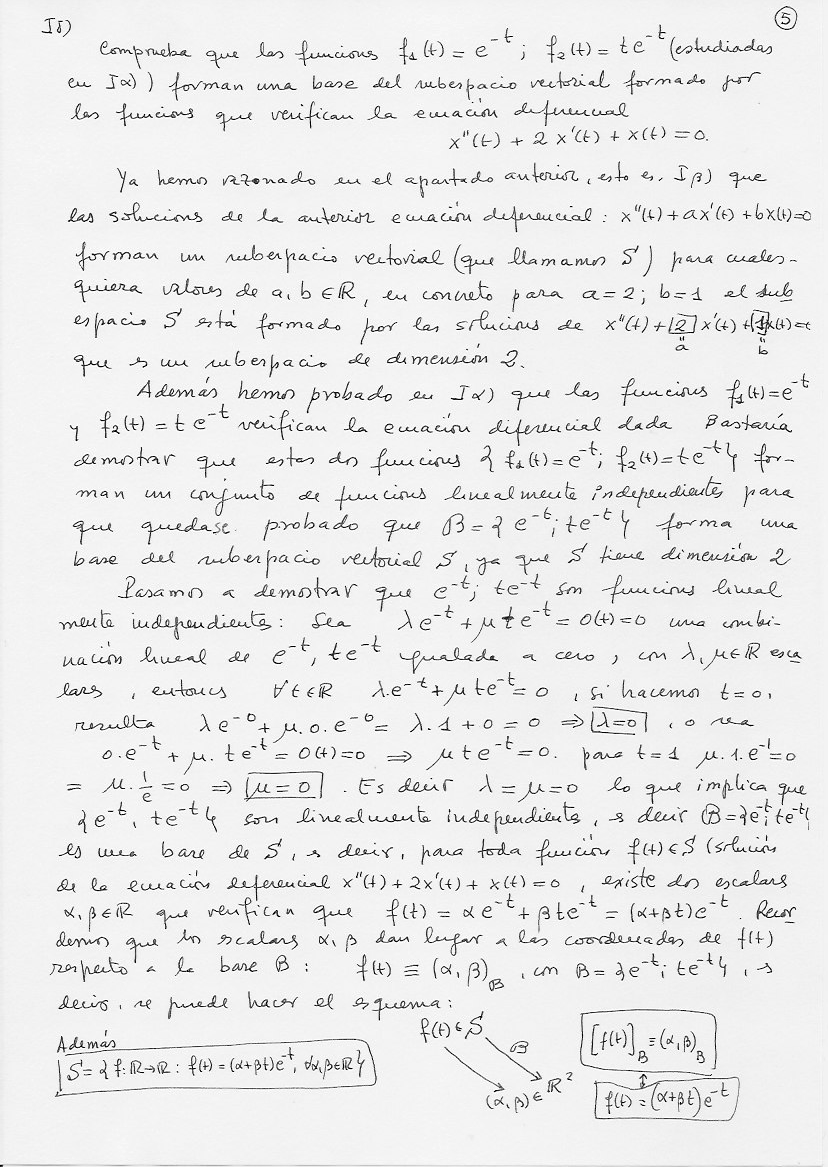 Iδ)
5
Comprueba que las funciones f₁(t) = e^{-t} ; f₂(t) = te^{-t} (estudiadas
en Iα) ) forman una base del subespacio vectorial formado por
las funciones que verifican la ecuación diferencial
x''(t) + 2 x'(t) + x(t) = 0.
Ya hemos razonado en el apartado anterior, esto es, Iβ) que
las soluciones de la anterior ecuación diferencial: x''(t) + ax'(t) + bx(t)=0
forman un subespacio vectorial (que llamamos S) para cuales-
quiera valores de a, b ∈ ℝ, en concreto para a=2; b=1 el sub
espacio S está formado por las soluciones de x''(t) + 2 x'(t) + 1x(t)=
" "
a b
que es un subespacio de dimensión 2.
Además hemos probado en Iα) que las funciones f₁(t)=e^{-t}
y f₂(t) = te^{-t} verifican la ecuación diferencial dada Bastaría
demostrar que estas dos funciones { f₁(t)=e^{-t}; f₂(t)=te^{-t}} for-
man un conjunto de funciones linealmente independientes para
que quedase probado que B={ e^{-t}; te^{-t}} forma una
base del subespacio vectorial S, ya que S tiene dimensión 2
Pasamos a demostrar que e^{-t}; te^{-t} son funciones lineal
mente independientes: Sea λe^{-t} + μte^{-t} = 0(t)=0 una combi-
nación lineal de e^{-t}, te^{-t} igualada a cero, con λ, μ∈ℝ esca
lares, entonces ∀t∈ℝ λ.e^{-t} + μte^{-t}=0, si hacemos t=0,
resulta λe^{-0} + μ.0.e^{-0} = λ.1 + 0 = 0 ⇒ λ=0, o sea
0.e^{-t} + μ.te^{-t} = 0(t)=0 ⇒ μte^{-t}=0. para t=1 μ.1.e^{-1}=0
= μ.1/e = 0 ⇒ μ=0. Es decir λ=μ=0 lo que implica que
{e^{-t}, te^{-t}} son linealmente independientes, es decir B={e^{-t}; te^{-t}}
es una base de S, es decir, para toda función f(t)∈S (solución
de la ecuación diferencial x''(t) + 2x'(t) + x(t) = 0, existe dos escalares
α, β∈ℝ que verifican que f(t) = αe^{-t} + βte^{-t} = (α+βt)e^{-t}. Recor
demos que los escalares α, β dan lugar a las coordenadas de f(t)
respecto a la base B: f(t) ≡ (α, β)_B, con B={e^{-t}; te^{-t}}, es
decir, se puede hacer el esquema:
Además
S={ f:ℝ→ℝ : f(t) = (α+βt)e^{-t}, ∀α,β∈ℝ}
f(t)∈S
B
(α, β)∈ℝ²
[f(t)]_B ≡ (α, β)_B
↕
f(t) = (α+βt)e^{-t}